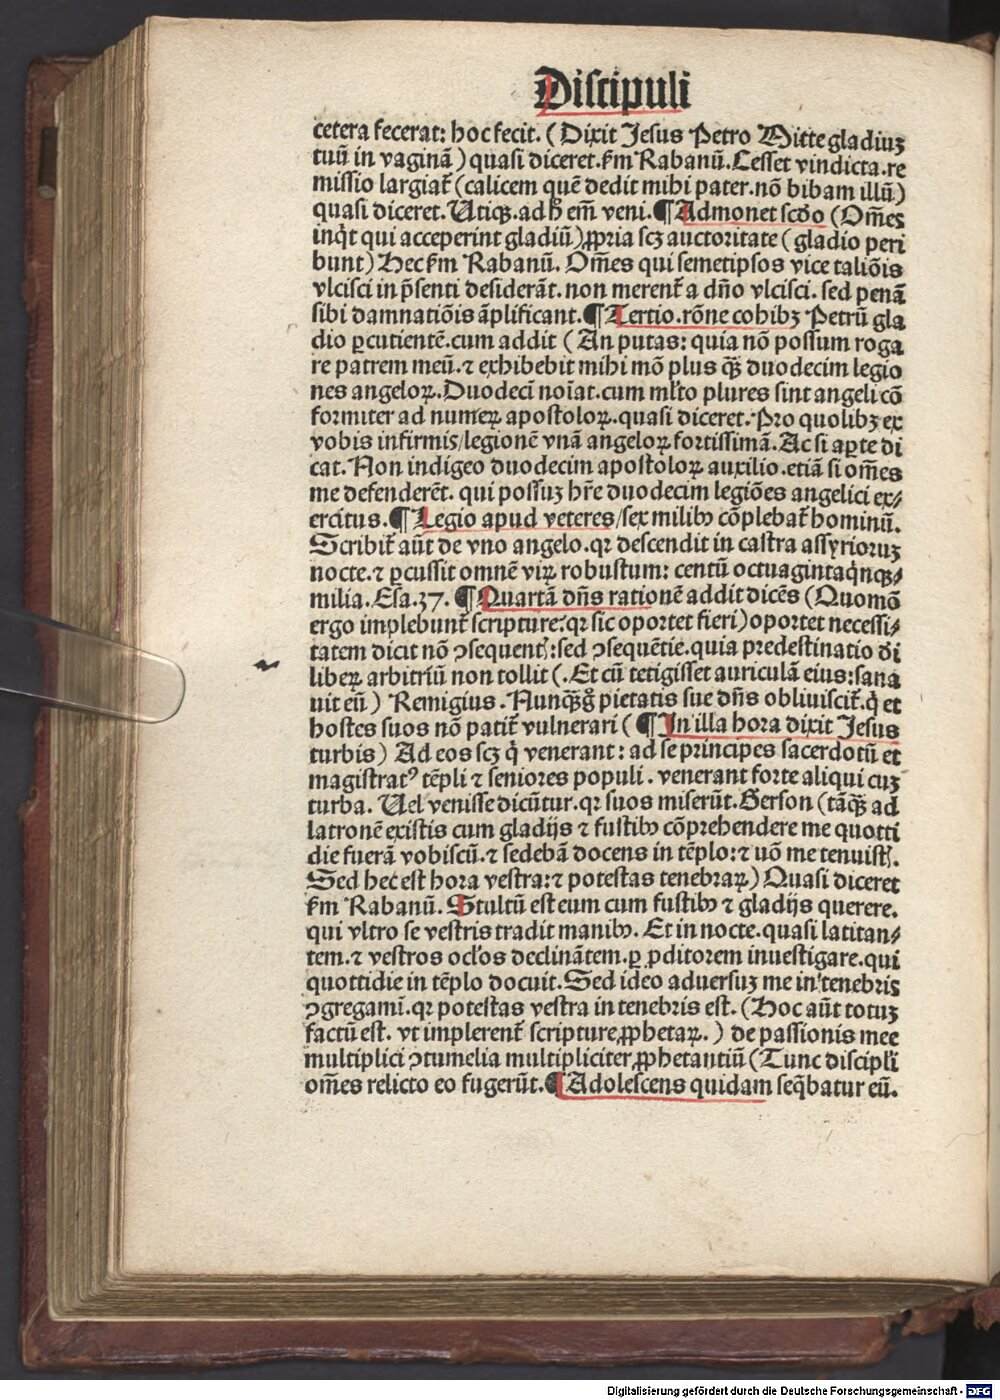 Discipuli
cetera fecerat: hoc fecit. (Dixit Jesus Petro Mitte gladiuꝫ
tuū in vaginā) quasi diceret. ẜm Rabanū. Cesset vindicta. re
missio largiat᷑ (calicem quē dedit mihi pater. nō bibam illū)
quasi diceret. Utiqꝫ. ad h̄ em̄ veni. ¶ Admonet scd̓o (Om̄es
inq̇t qui acceperint gladiū) ꝓpria scꝫ auctoritate (gladio peri
bunt) Hec ẜm Rabanū. Om̄es qui semetipsos vice taliōis
vlcisci in p̄senti desiderāt. non merent᷑ a dn̄o vlcisci. sed penā
sibi damnatiōis āplificant. ¶ Tertio. rōne cohibꝫ Petrū gla
dio ꝑcutientē. cum addit (An putas: quia nō possum roga
re patrem meū. ⁊ exhibebit mihi mō plus qꝫ̄ duodecim legio
nes angeloꝝ. Duodecī noīat. cum ml̓to plures sint angeli cō
formiter ad numeꝝ apostoloꝝ. quasi diceret. Pro quolibꝫ ex
vobis infirmis/ legionē vnā angeloꝝ fortissimā. Ac si aꝑte di
cat. Non indigeo duodecim apostoloꝝ auxilio. etiā si om̄es
me defenderēt. qui possuꝫ hr̄e duodecim legiōes angelici ex⸗
ercitus. ¶ Legio apud veteres/ sex milibꝰ cōplebat᷑ hominū.
Scribit᷑ aūt de vno angelo. qꝛ descendit in castra assyrioruꝫ
nocte. ⁊ ꝑcussit omnē viꝝ robustum: centū octuagintaq̇nqꝫ⸗
milia. Esa. 37. ¶ Quartā dn̄s rationē addit dicēs (Quomō
ergo implebunt᷑ scripture: qꝛ sic oportet fieri) oportet necessi⸗
tatem dicit nō ꝯsequentꝭ: sed ꝯsequētie. quia predestinatio di
libeꝝ arbitriū non tollit (. Et cū tetigisset auriculā eius: sana
uit eū) Remigius. Nunqꝫ̄ g̊ pietatis sue dn̄s obliuiscit᷑. q̇ et
hostes suos nō patit᷑ vulnerari (¶ In illa hora dixit Jesus
turbis) Ad eos scꝫ q̇ venerant: ad se principes sacerdotū et
magistratꝰ tēpli ⁊ seniores populi. venerant forte aliqui cuꝫ
turba. Uel venisse dicūtur. qꝛ suos miserūt. Gerson (tāqꝫ̄ ad
latronē existis cum gladijs ⁊ fustibꝰ cōprehendere me quotti
die fuerā vobiscū. ⁊ sedebā docens in tēplo: ⁊ nō me tenuistꝭ.
Sed hec est hora vestra: ⁊ potestas tenebraꝝ) Quasi diceret
ẜm Rabanū. Stultū est eum cum fustibꝰ ⁊ gladijs querere.
qui vltro se vestris tradit manibꝰ. Et in nocte. quasi latitan⸗
tem. ⁊ vestros ocl̓os declināntem. ꝑ ꝓditorem inuestigare. qui
quottidie in tēplo docuit. Sed ideo aduersuꝫ me in tenebris
ꝯgregamī. qꝛ potestas vestra in tenebris est. (Hoc aūt totuꝫ
factū est. vt implerent᷑ scripture ꝓphetaꝝ.) de passionis mee
multiplici ꝯtumelia multipliciter ꝓphetantiū (Tunc discipl̓i
om̄es relicto eo fugerūt. ¶ Adolescens quidam seq̄batur eū.
Digitalisierung gefördert durch die Deutsche Forschungsgemeinschaft - DFG